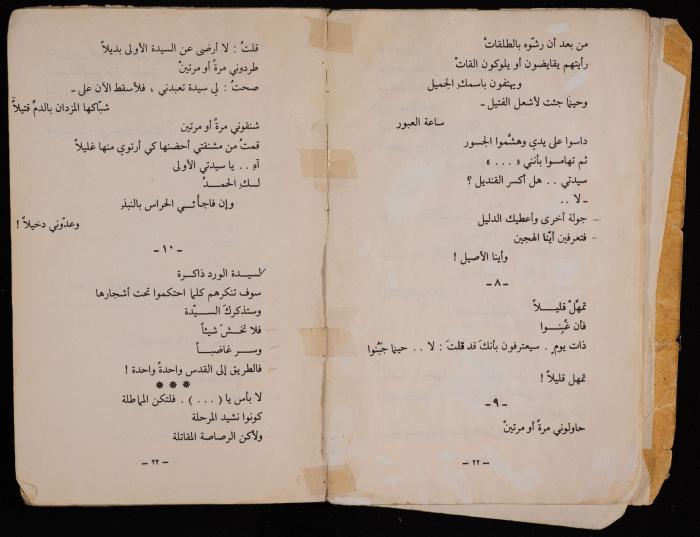 من بعد أن رشّوه بالطلقات
رأيتهم يقايضون أو يلوكون القات
ويهتفون باسمكِ الجميل
وحينما جئت لأشعل الفتيل ـ
ساعة العبور
داسوا على يدي وهشّموا الجسور
ثم تهامسوا بأنني « ... »
سيدتي .. هل أكسر القنديل ؟
ـ لا ..
جولة أخرى وأعطيك الدليل
فتعرفين أيّنا الهجين
وأينا الأصيل !
ـ ٨ ـ
تمهّلْ قليلاً
فان غُبنوا
ذات يوم . سيعترفون بأنك قد قلتَ : لا .. حينما جَبُنوا
تمهل قليلاً !
ـ ٩ ـ
حاولوني مرةً أو مرتينْ
ـ ٢٢ ـ
قلتُ : لا أرضى عن السيدة الأولى بديلاً
طردوني مرةً أو مرتينْ
صحتُ : لي سيدة تعبدني ، فلأسقط الآن على ـ
شبّاكها المزدان بالدمِّ قتيلاً
شنقوني مرةً أو مرتين
قمتُ من مشنقتي أحضنها كي أرتوي منها غليلاً
آهِ .. يا سيدتي الأولى
لـكِ الحمـدُ
وإن فاجأنـي الحراس بالنبذِ
وعدّوني دخيلاً !
ـ ١٠ ـ
لسيدة الورد ذاكرة
سوف تنكرهم كلما احتكموا تحت أشجارها
وستذكركَ السيّدة
فلا تخشَ شيئاً
وسر غاضباً
فالطريق إلى القدس واحدةٌ واحدة !
* * *
لا بأس يا ( ... ) . فلتكن المماطلة
كونوا نشيد المرحلة
ولأكن الرصاصة المقاتلة
ـ ٢٣ ـ